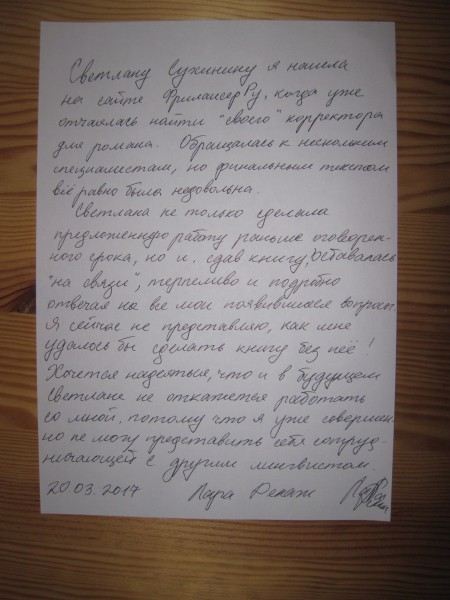 Светлану Сухинину я нашла
на сайте Фрилансер Ру, когда уже
отчаялась найти "своего" корректора
для романа. Обращалась к нескольким
специалистам, но финальным текстом
всё равно была недовольна.
Светлана не только сделала
предложенную работу раньше оговорен-
ного срока, но и, сдав книгу, оставалась
"на связи", терпеливо и подробно
отвечая на все мои появившиеся вопросы.
Я сейчас не представляю, как мне
удалось бы сделать книгу без неё!
Хочется надеяться, что и в будущем
Светлана не откажется работать
со мной, потому что я уже совершен-
но не могу представить себя сотруд-
ничающей с другим лингвистом.
20.03.2017 Лара